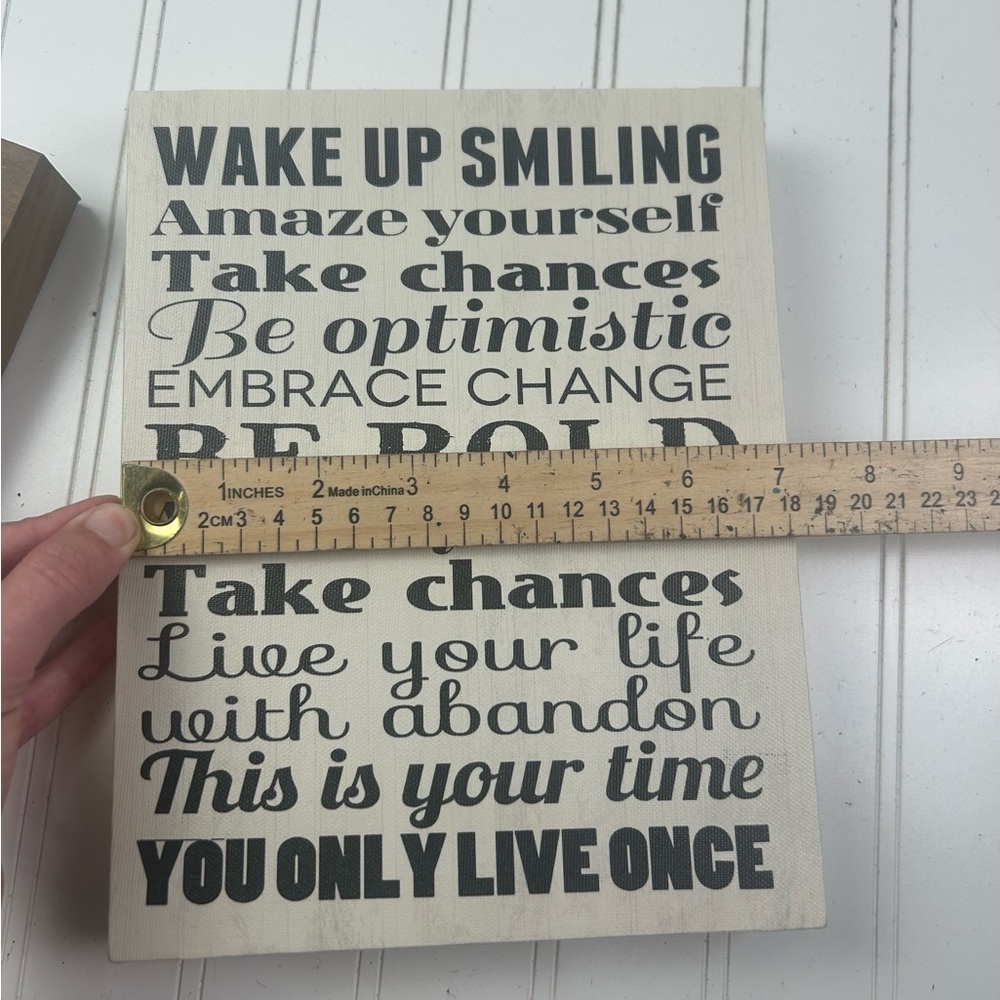 WAKE UP SMILING
Amaze yourself
Take chances
Be optimistic
EMBRACE CHANGE
BE BOLD
1 INCHES 2 Made in China 3 4 5 6 7 8 9
2 CM 3 4 5 6 7 8 9 10 11 12 13 14 15 16 17 18 19 20 21 22 23 2
Take chances
Live your life
with abandon
This is your time
YOU ONLY LIVE ONCE